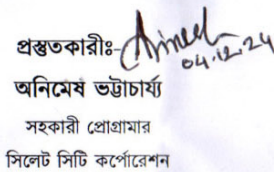 প্রস্তুতকারীঃ-
04.12.24
অনিমেষ ভট্টাচার্য্য
সহকারী প্রোগ্রামার
সিলেট সিটি কর্পোরেশন